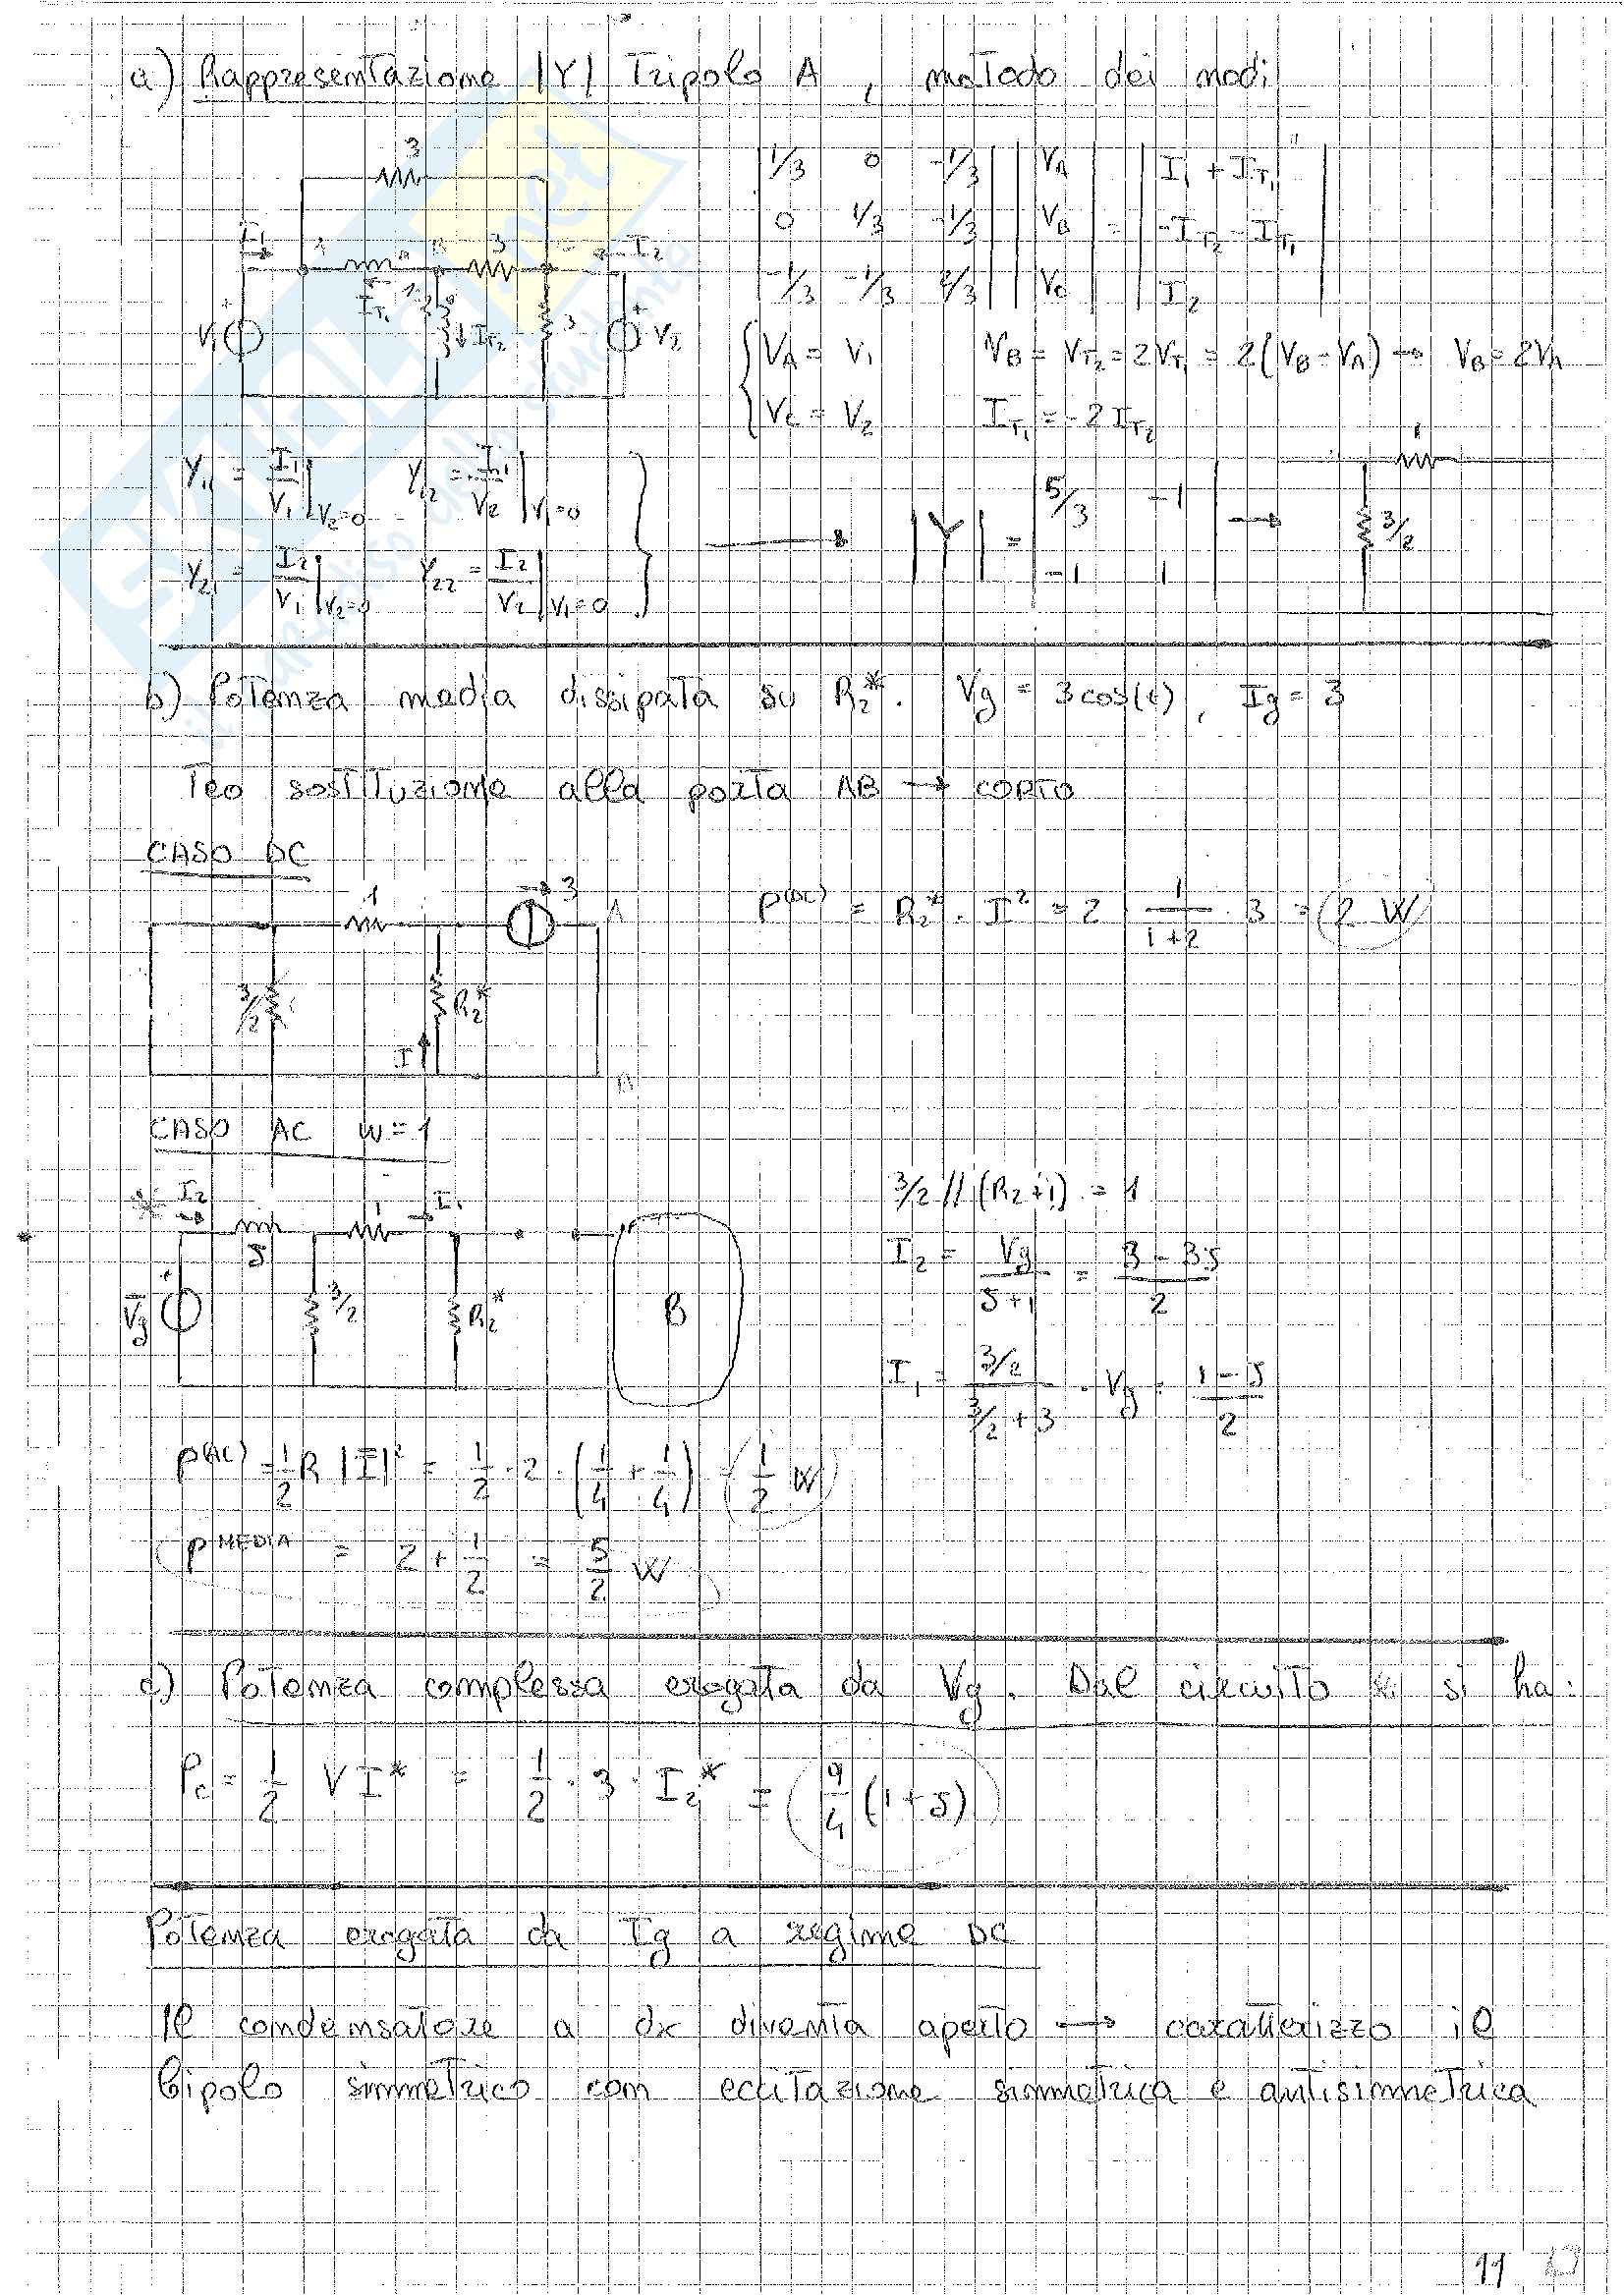 a) Rappresentazione |Y| Tripolo A , metodo dei nodi
3
1/3 0 -1/3 VA I1 + IT1
0 1/3 -1/3 VB = -IT2 - IT1
-1/3 -1/3 2/3 VC I2
A B 3 I2
IT1 IT2 3
V1 + + V2
VA = V1 VB = VT2 = 2VT1 = 2(VB - VA) → VB = 2VA
VC = V2 IT1 = -2 IT2
Y11 = I1/V1 |V2=0 Y12 = I1/V2 |V1=0
Y21 = I2/V1 |V2=0 Y22 = I2/V2 |V1=0
→ |Y| = | 5/3 -1 | →
| -1 1 |
1
3/2
b) Potenza media dissipata su R2*. Vg = 3cos(t), Ig = 3
Teo sostituzione alla porta AB → corto
CASO DC
1 → 3 A
P(DC) = R2* · I² = 2 1/(1+2) · 3 = 2 W
3/2 R2*
I
CASO AC W=1
* I2 1 I1
J
Vg + 3/2 R2* B
3/2 // (R2+1) = 1
I2 = Vg/(J+1) = (3 - 3J)/2
I1 = (3/2)/(3/2 + 3) · Vg = (1 - J)/2
P(AC) = 1/2 R |I|² = 1/2 · 2 · (1/4 + 1/4) = 1/2 W
P MEDIA = 2 + 1/2 = 5/2 W
c) Potenza complessa erogata da Vg. Dal circuito * si ha:
Pc = 1/2 V I* = 1/2 · 3 · I2* = 9/4 (1+J)
Potenza erogata da Ig a regime DC
Il condensatore a dx diventa aperto → caratterizzo il
bipolo simmetrico con eccitazione simmetrica e antisimmetrica
11